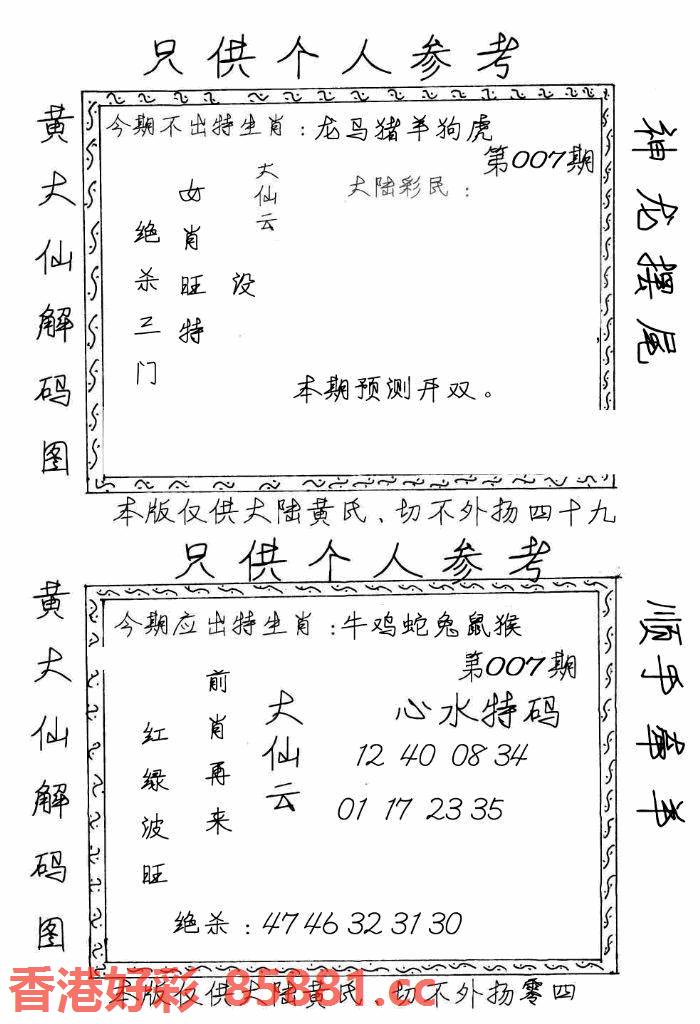 只供个人参考
黄大仙解码图
今期不出特生肖：龙马猪羊狗虎
第007期
大陆彩民：
大仙云
设
女肖旺特
绝杀三门
本期预测开双。
神龙摆尾
本版仅供大陆黄氏、切不外扬四十九
只供个人参考
黄大仙解码图
今期应出特生肖：牛鸡蛇兔鼠猴
第007期
心水特码
大仙云
前肖再来
红绿波旺
12 40 08 34
01 17 23 35
绝杀：47 46 32 31 30
顺手牵羊
本版仅供大陆黄氏、切不外扬零四
香港好彩 85881.cc